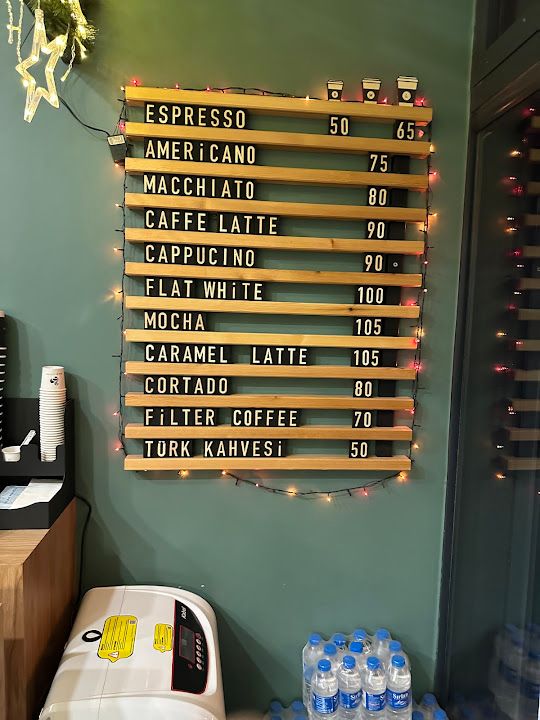 ESPRESSO 50 65
AMERiCANO 75
MACCHIATO 80
CAFFE LATTE 90
CAPPUCINO 90
FLAT WHiTE 100
MOCHA 105
CARAMEL LATTE 105
CORTADO 80
FiLTER COFFEE 70
TÜRK KAHVESi 50